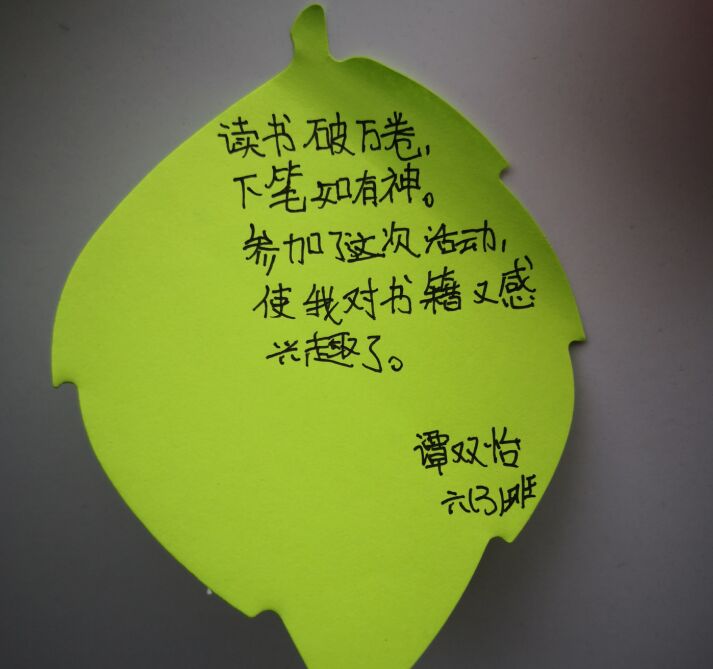 读书破万卷，
下笔如有神。
参加了这次活动，
使我对书籍又感
兴趣了。
谭双怡
六(3)班